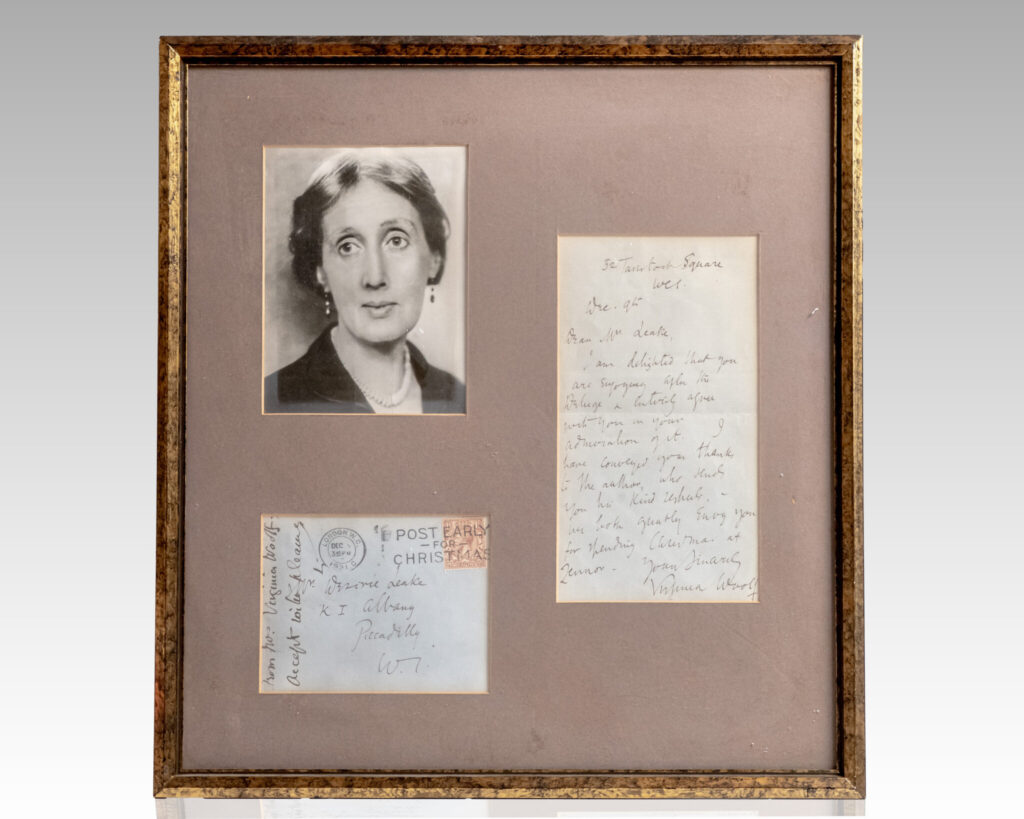 52 Tavistock Square
WC1.
Dec. 9th
Dear Mrs Leake,
I am delighted that you
are enjoying After the
Deluge & entirely agree
with you in your
admiration of it. I
have conveyed your thanks
to the author, who sends
you his kind regards. -
We both greatly envy you
for spending Christmas at
Zennor - Yours Sincerely
Virginia Woolf
from Mrs. Virginia Woolf.
accept with
LONDON
DEC
1931
POST EARLY
-FOR-
CHRISTMAS
Desirie Leake
K I Albany
Piccadilly
W.1.